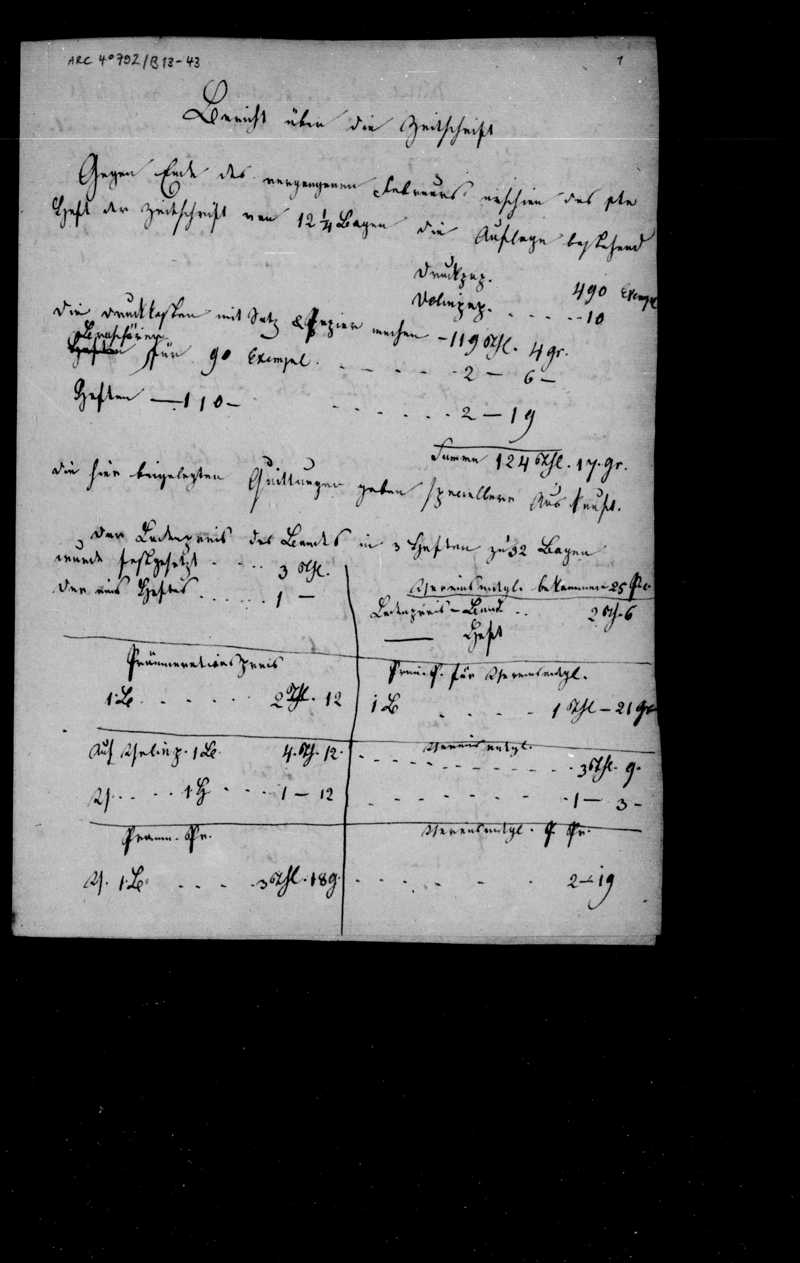 ARC 4° 792/B13-43
1
Bericht über die Zeitschrift
Gegen Ende des vergangenen Februars erschien das 1te
Heft der Zeitschrift von 12 1/4 Bogen die Auflage bestehend
Druckpap. 490 Exempl
Velinpap. . . . . . 10
Die Druckkosten mit Satz & Papier machen – 119 Thl. 4 gr.
Broschüren
für 90 Exempl. . . . . . 2 – 6 –
Heften — 110 – . . . . . . 2 – 19
Summe 124 Thl. 17. gr.
Die hier beigelegten Quittungen geben speciellere Auskunft.
Der Ladenpreis des Bandes in 3 Heften zu 32 Bogen
wurde festgesetzt . . . . 3 Thl.
Der eines Heftes . . . . . . 1 –
Vereinsmitgl. bekommen 25 Pc.
Ladenpreis – Band . . 2 Th. 6
—— Heft
Pränumerationspreis
1 B. . . . . . . 2 Thl. 12
Pränu. P. für Vereinsmitgl.
1 B . . . . 1 Thl – 21 gr
Auf Velinp. 1 B. 4. Th. 12.
V. . . . 1 H . . . . 1 – 12
Vereinsmitgl.
. . . . . . . . . . 3 Thl. 9.
. . . . . . . . . 1 – 3 –
Pränu. Pr.
V. 1 B. . . . . 3 Thl. 18 g.
Vereinsmitgl. P. Pr.
. . . . . . . 2 – 19